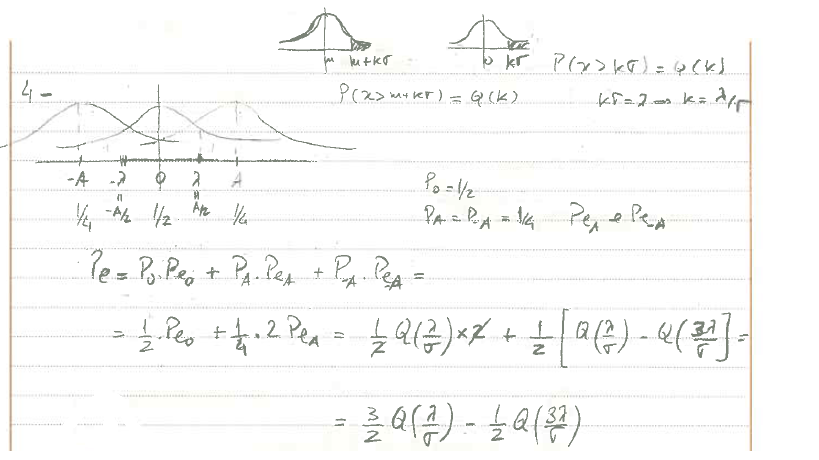 μ μ+kσ 0 kσ
P(x>kσ) = Q(k)
4- P(x>μ+kσ) = Q(k) kσ=λ ⇒ k=λ/σ
-A -λ 0 λ A
" "
1/4 -A/2 1/2 A/2 1/4
P₀ = 1/2
P_A = P_-A = 1/4 Pe_A = Pe_-A
Pe = P₀.Pe₀ + P_A.Pe_A + P_-A.Pe_-A =
= 1/2 .Pe₀ + 1/4 . 2 Pe_A = 1/2 Q(λ/σ)×2 + 1/2 [Q(λ/σ) - Q(3λ/σ)] =
= 3/2 Q(λ/σ) - 1/2 Q(3λ/σ)